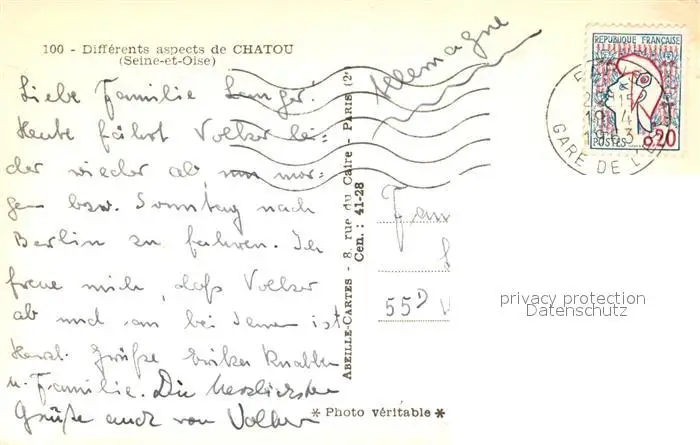 100 - Différents aspects de CHATOU
(Seine-et-Oise)
Allemagne
Liebe Familie Langer!
Heute fährt Volker lei-
der wieder ab, um mor-
gen bzw. Sonntag nach
Berlin zu fahren. Ich
freue mich, daß Volker
ab und an bei Ihnen ist
Herzl. Grüße Knabbe
u. Familie. Die herzlichsten
Grüße auch von Volker
ABEILLE-CARTES - 8, rue du Caire - PARIS (2e
Cen.: 41-28
REPUBLIQUE FRANÇAISE
POSTES 0,20
GARE DE L'
Fam
55D
privacy protection
Datenschutz
* Photo véritable *